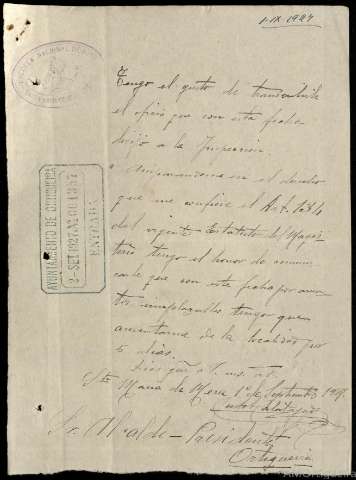 1-IX-1927
ESCUELA NACIONAL DE
Tengo el gusto de transcribirle
el oficio que con esta fecha
dirijo a la Inspección:
"Amparándome en el derecho
que me confiere el Art.
del vigente Estatuto del Magis-
terio tengo el honor de comuni-
carle que con esta fecha por asun-
tos inaplazables tengo que
ausentarme de la localidad por
5 días.
Dios gue a V. ms. as.
Sta María de Mera 1º de Septiembre 1927.
Sr. Alcalde-Presidente
Ortigueira
AYUNTAMIENTO DE ORTIGUEIRA
2-SET.1927
ENTRADA
AM.Ortigueira